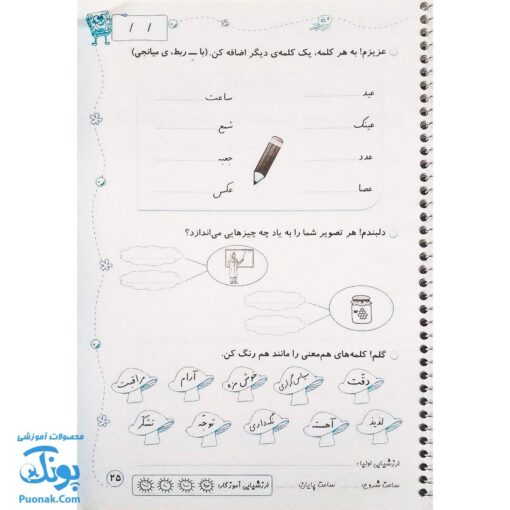 / /
عزیزم! به هر کلمه، یک کلمه‌ی دیگر اضافه کن. (با ـِ ربط، ی میانجی)
عید ساعت
عینک شمع
عدد جعبه
عصا عکس
دلبندم! هر تصویر شما را به یاد چه چیزهایی می‌اندازد؟
گلم! کلمه‌های هم‌معنی را مانند هم رنگ کن.
دقّت سپاس‌گزاری خوش مزه آرام مراقبت
لذیذ آهسته نگه‌داری توجّه تشکّر
ارزشیابی اولیا:
ساعت شروع: ساعت پایان: ارزشیابی آموزگار:
۲۵
محصولات آموزشی
پونک
Puonak.Com